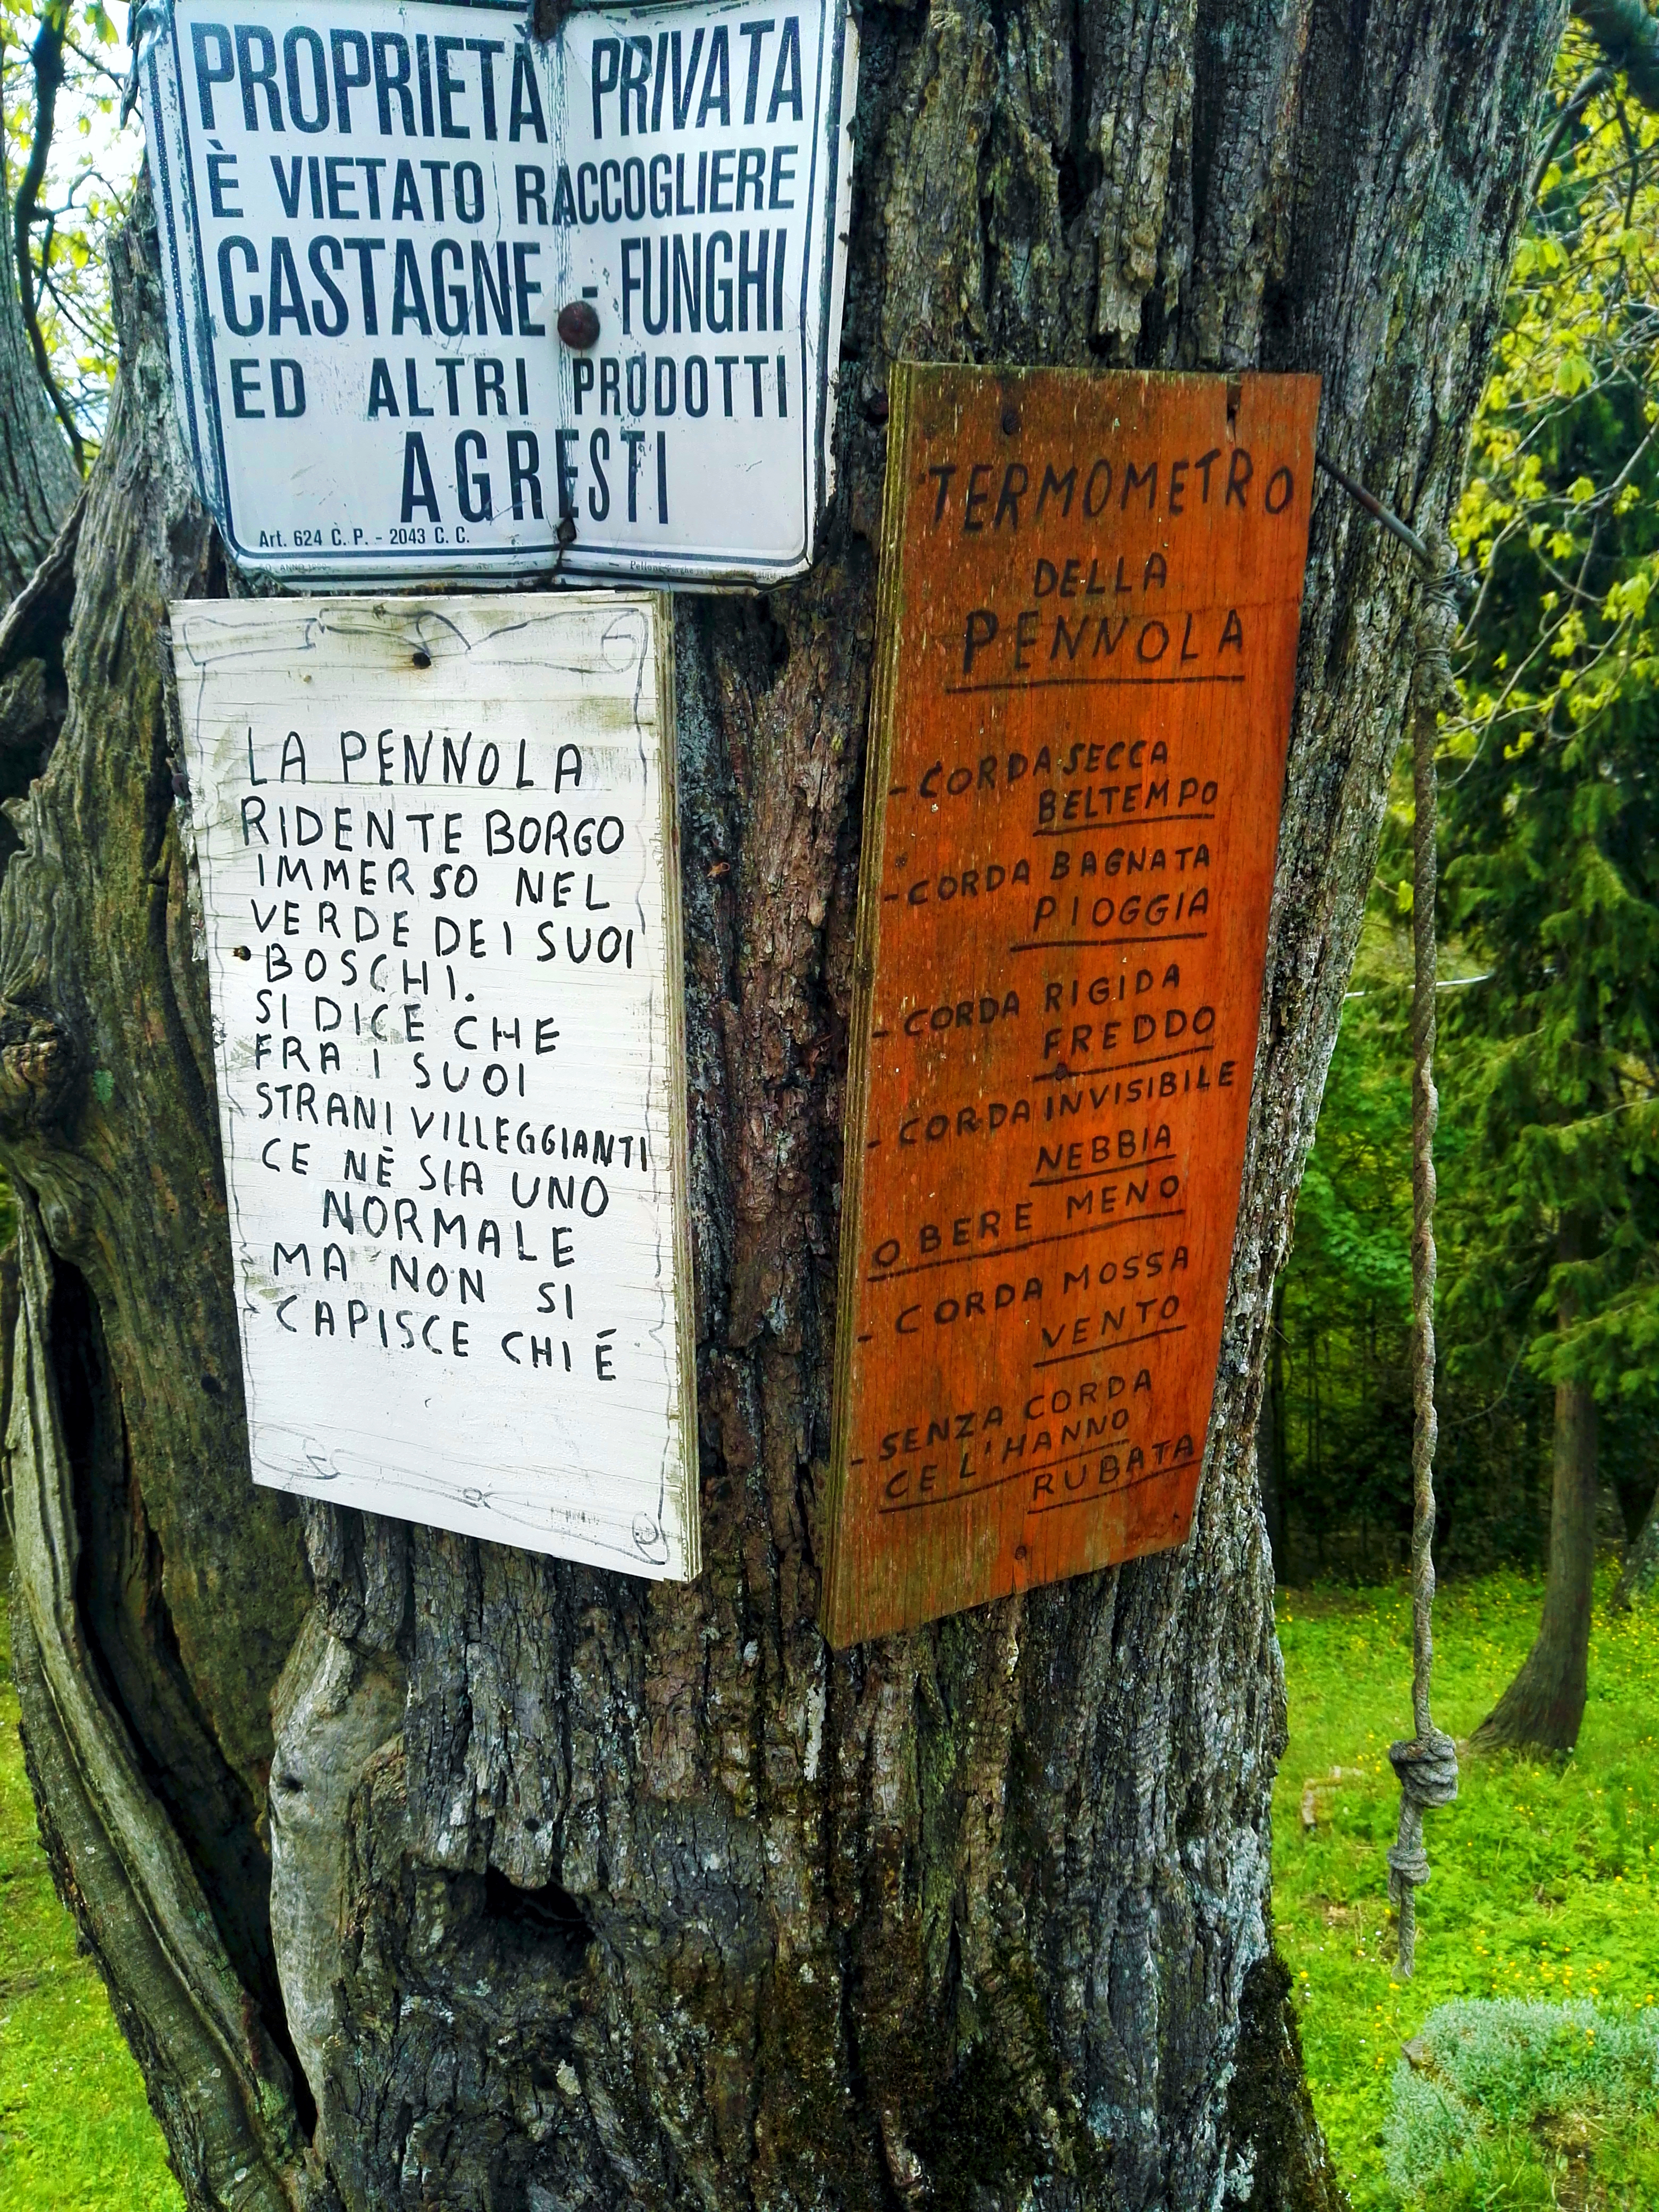 PROPRIETÀ PRIVATA
È VIETATO RACCOGLIERE
CASTAGNE - FUNGHI
ED ALTRI PRODOTTI
AGRESTI
Art. 624 C. P. - 2043 C. C.
LA PENNOLA
RIDENTE BORGO
IMMERSO NEL
VERDE DEI SUOI
BOSCHI.
SI DICE CHE
FRA I SUOI
STRANI VILLEGGIANTI
CE NÈ SIA UNO
NORMALE
MA NON SI
CAPISCE CHI É
TERMOMETRO
DELLA
PENNOLA
- CORDA SECCA
BELTEMPO
- CORDA BAGNATA
PIOGGIA
- CORDA RIGIDA
FREDDO
- CORDA INVISIBILE
NEBBIA
O BERE MENO
- CORDA MOSSA
VENTO
- SENZA CORDA
CE L'HANNO
RUBATA